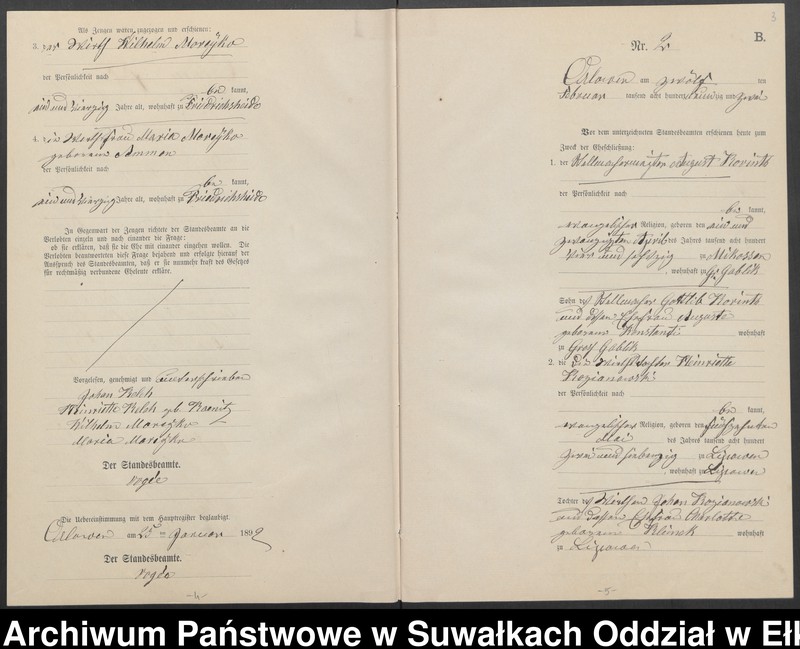 Als Zeugen waren zugezogen und erschienen:
3. der Wirth Wilhelm Moreyko
der Persönlichkeit nach
be kannt,
ein und vierzig Jahre alt, wohnhaft zu Friedrichsheide
4. die Wirthsfrau Maria Moreyko
geborene
der Persönlichkeit nach
be kannt,
ein und vierzig Jahre alt, wohnhaft zu Friedrichsheide
In Gegenwart der Zeugen richtete der Standesbeamte an die
Verlobten einzeln und nach einander die Frage:
ob sie erklären, daß sie die Ehe mit einander eingehen wollen. Die
Verlobten beantworteten diese Frage bejahend und erfolgte hierauf der
Ausspruch des Standesbeamten, daß er sie nunmehr kraft des Gesetzes
für rechtmäßig verbundene Eheleute erkläre.
Vorgelesen, genehmigt und unterschrieben
Johan Kelch
Henriette Kelch geb.
Wilhelm Moreyko
Maria Moreyko
Der Standesbeamte.
Die Uebereinstimmung mit dem Hauptregister beglaubigt.
Orlowen am Januar 1892
Der Standesbeamte.
-4-
3
B.
Nr. 2
Orlowen am zwölf ten
Februar tausend acht hundert neunzig und zwei
Vor dem unterzeichneten Standesbeamten erschienen heute zum
Zweck der Eheschließung:
1. der August Korinth
der Persönlichkeit nach
be kannt,
evangelischer Religion, geboren den ein und
zwanzigsten April des Jahres tausend acht hundert
vier und sechszig zu Mikossen
, wohnhaft zu Gr. Gablik
Sohn des Gottlieb Korinth
und dessen Ehefrau Auguste
geborene Konstanti wohnhaft
zu Groß Gablik
2. die Wirthstochter Henriette
der Persönlichkeit nach
be kannt,
evangelischer Religion, geboren den fünfzehnten
Mai des Jahres tausend acht hundert
zwei und siebenzig zu
, wohnhaft zu
Tochter des Johan
und dessen Ehefrau Charlotte
geborene wohnhaft
zu
-5-
Archiwum Państwowe w Suwałkach Oddział w Ełk